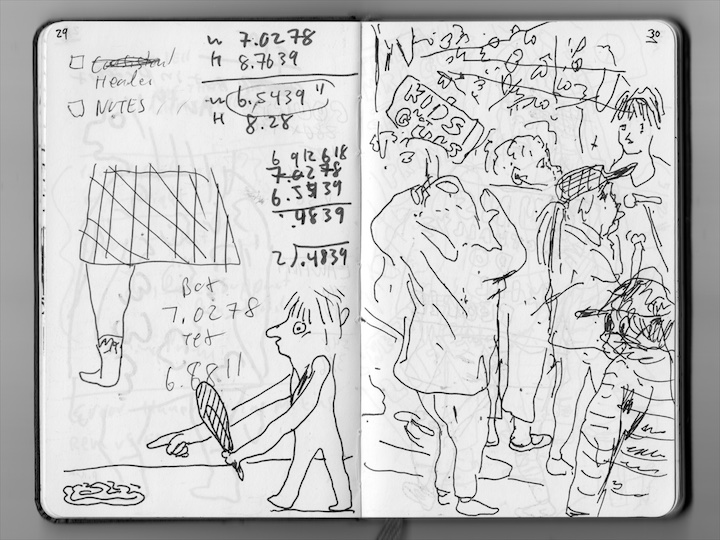 29
Header
NOTES
W 7.0278
H 8.7639
W 6.5439"
H 8.28
6 9 12 6 18
7.0278
6.5439
.4839
2).4839
Bot
7.0278
Tet
6.8811
30
KIDS
NOT
GUNS